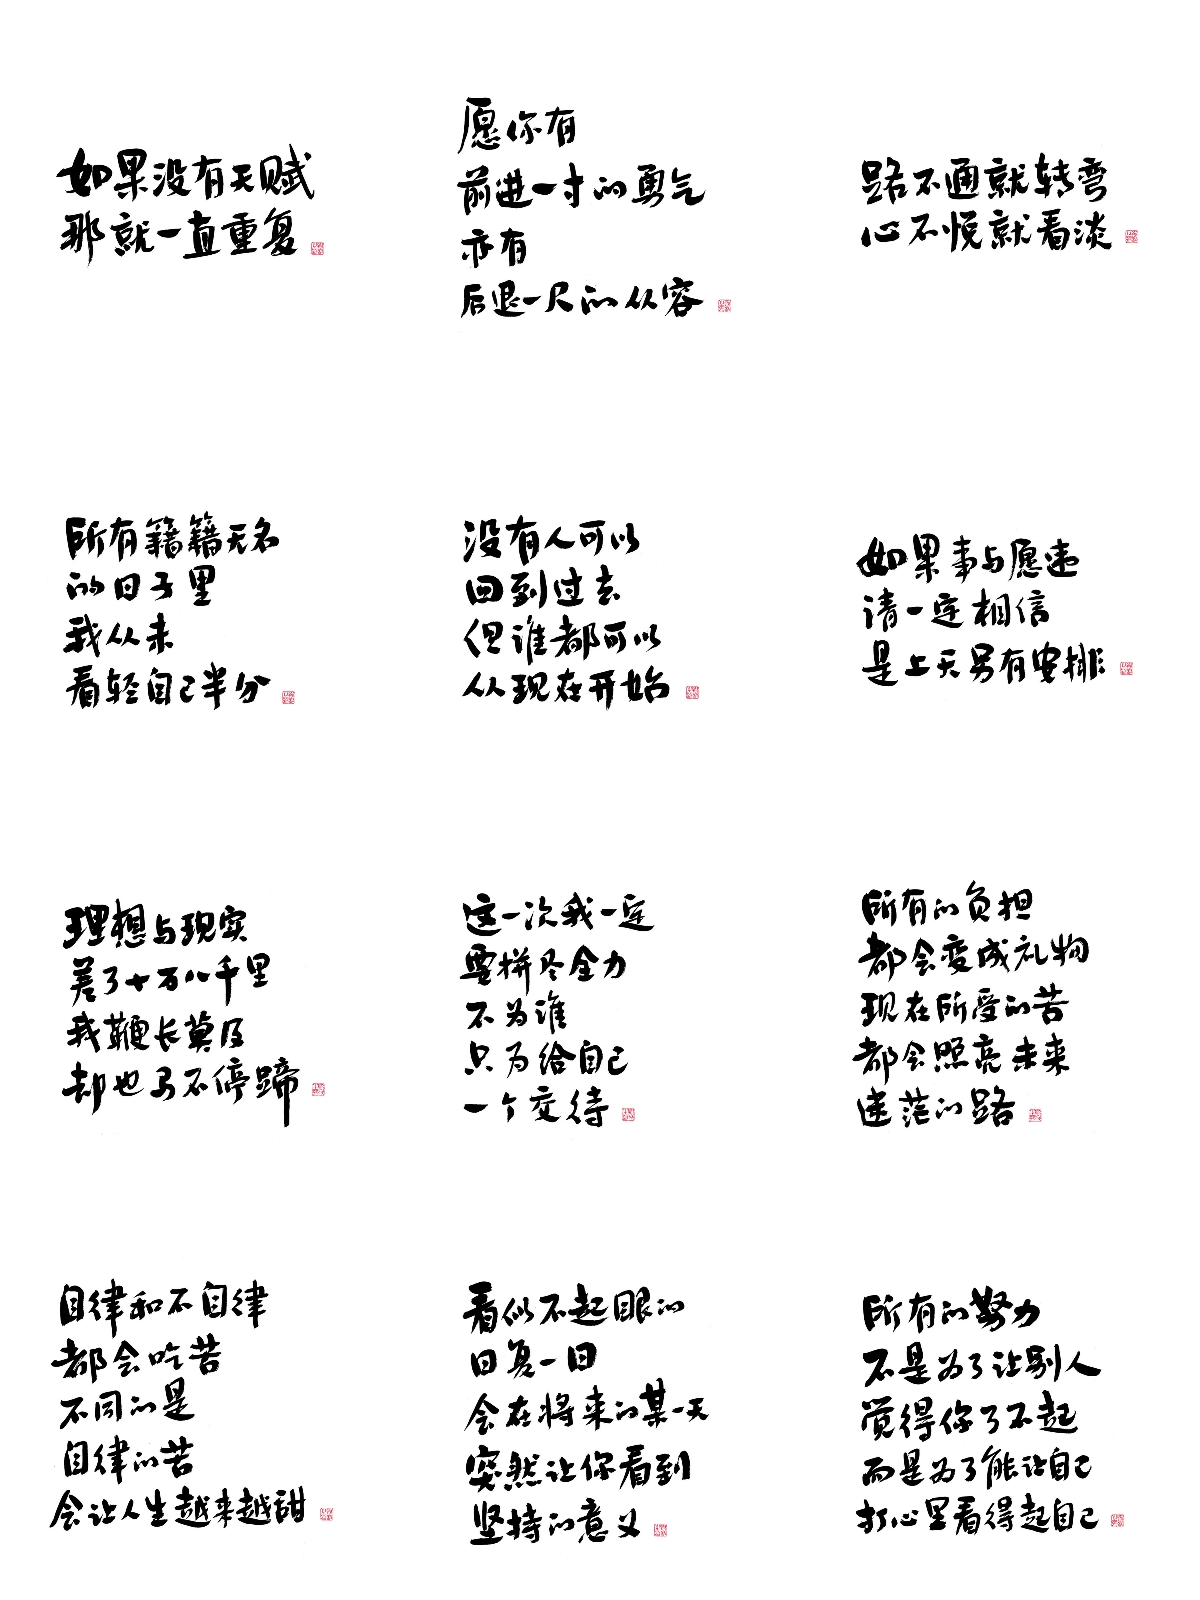 如果没有天赋
那就一直重复
愿你有
前进一寸的勇气
亦有
后退一尺的从容
路不通就转弯
心不悦就看淡
所有籍籍无名
的日子里
我从未
看轻自己半分
没有人可以
回到过去
但谁都可以
从现在开始
如果事与愿违
请一定相信
是上天另有安排
理想与现实
差了十万八千里
我鞭长莫及
却也马不停蹄
这一次我一定
要拼尽全力
不为谁
只为给自己
一个交待
所有的负担
都会变成礼物
现在所受的苦
都会照亮未来
迷茫的路
自律和不自律
都会吃苦
不同的是
自律的苦
会让人生越来越甜
看似不起眼的
日复一日
会在将来的某一天
突然让你看到
坚持的意义
所有的努力
不是为了让别人
觉得你了不起
而是为了能让自己
打心里看得起自己